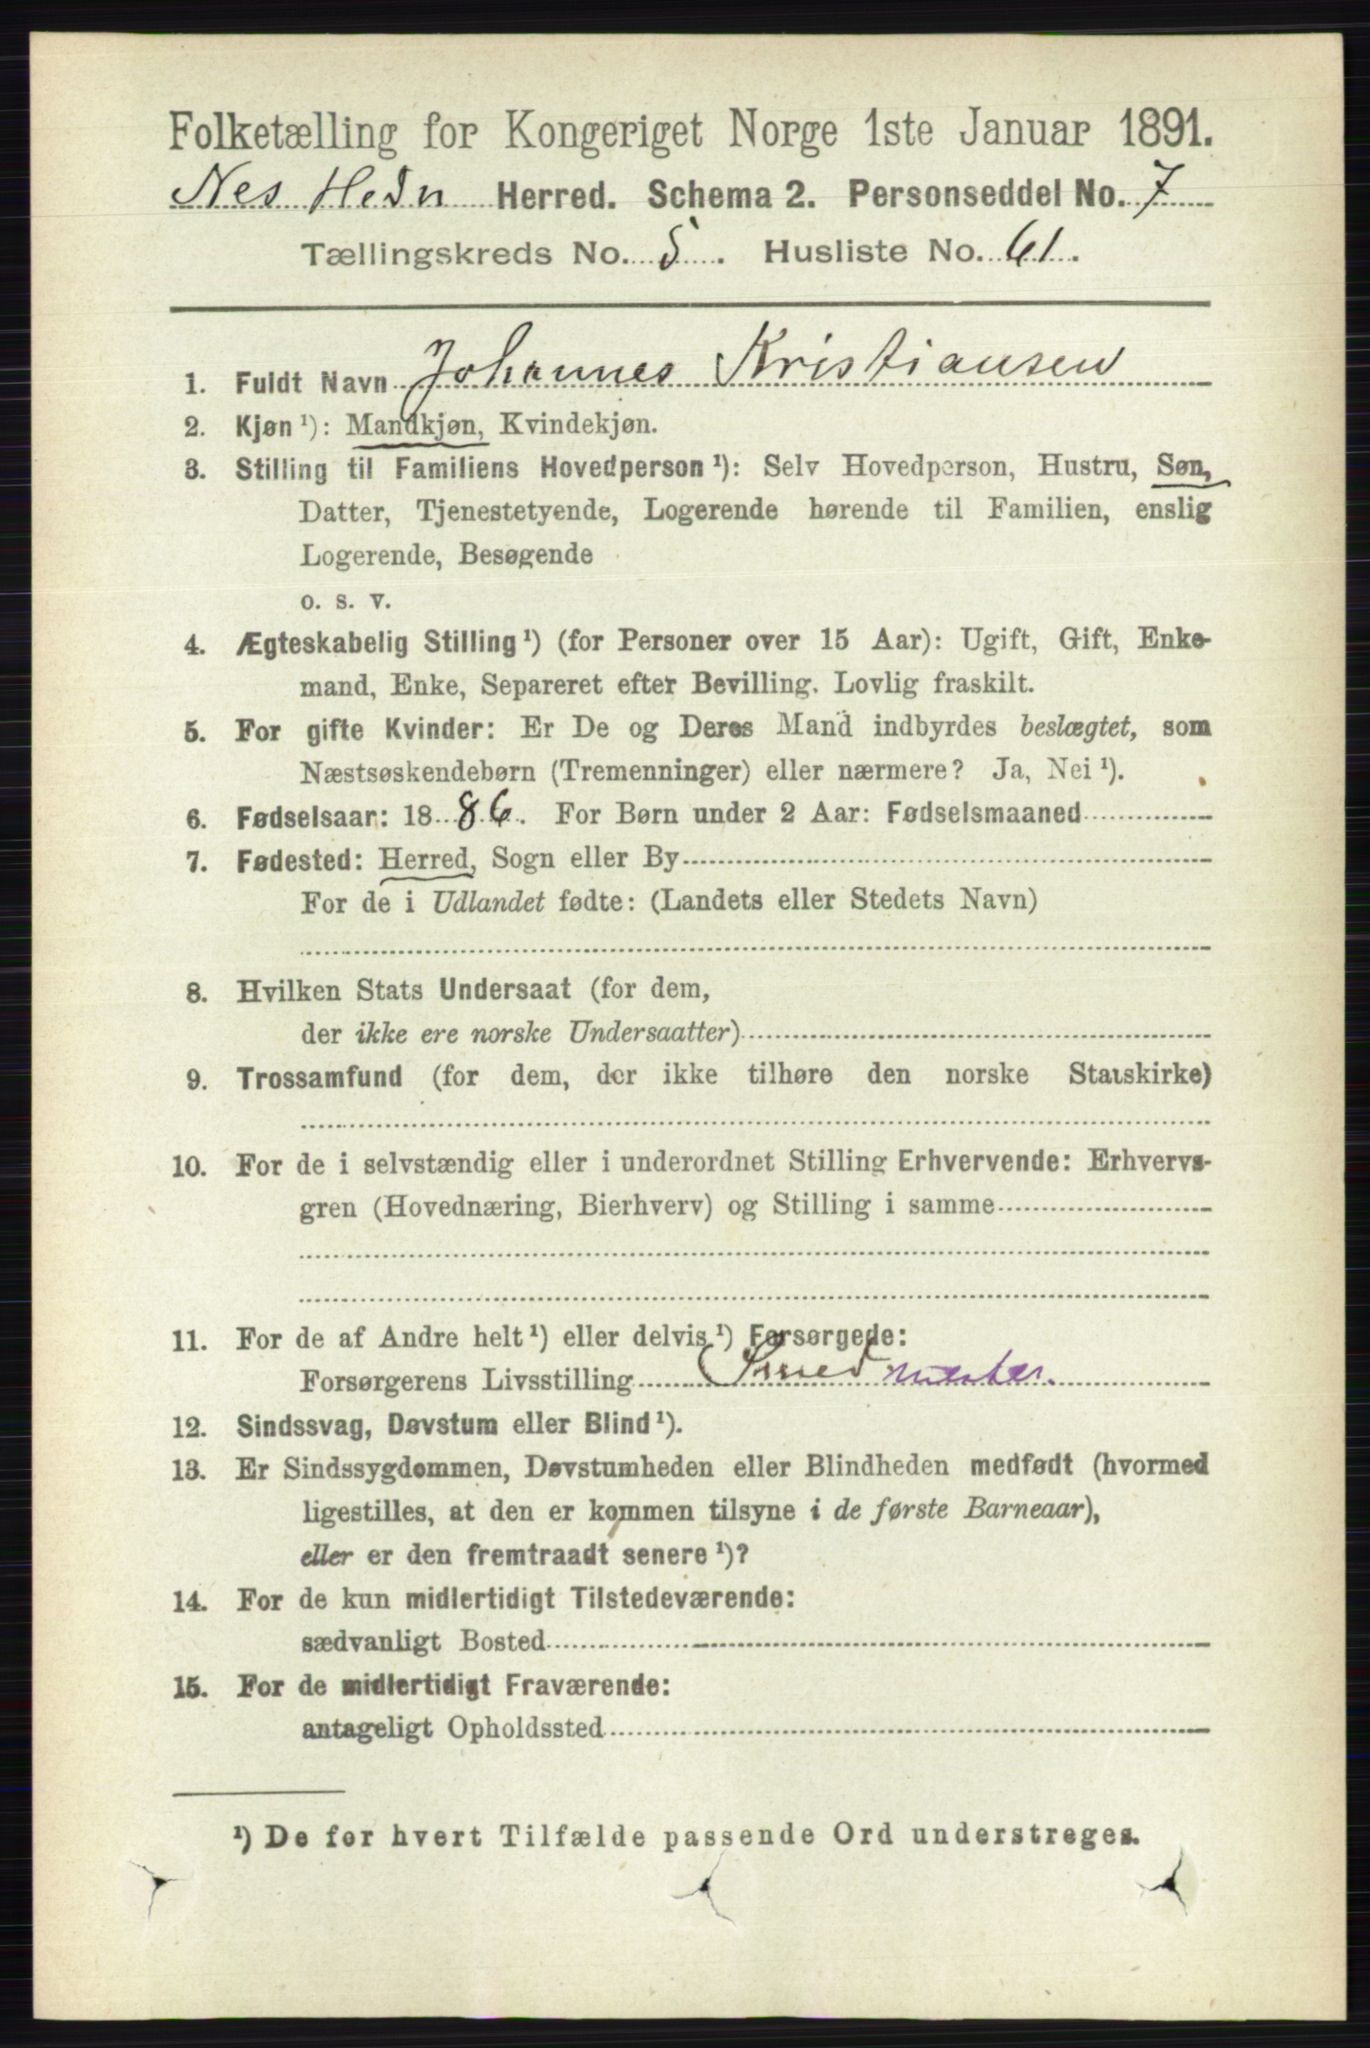 Folketælling for Kongeriget Norge 1ste Januar 1891.
Nes Hedn Herred. Schema 2. Personseddel No. 7
Tællingskreds No. 5. Husliste No. 61.
1. Fuldt Navn Johannes Kristiansen
2. Kjøn¹): Mandkjøn, Kvindekjøn.
3. Stilling til Familiens Hovedperson¹): Selv Hovedperson, Hustru, Søn,
Datter, Tjenestetyende, Logerende hørende til Familien, enslig
Logerende, Besøgende
o. s. v.
4. Ægteskabelig Stilling¹) (for Personer over 15 Aar): Ugift, Gift, Enke-
mand, Enke, Separeret efter Bevilling. Lovlig fraskilt.
5. For gifte Kvinder: Er De og Deres Mand indbyrdes beslægtet, som
Næstsøskendebørn (Tremenninger) eller nærmere? Ja, Nei¹).
6. Fødselsaar: 1886. For Børn under 2 Aar: Fødselsmaaned
7. Fødested: Herred, Sogn eller By
For de i Udlandet fødte: (Landets eller Stedets Navn)
8. Hvilken Stats Undersaat (for dem,
der ikke ere norske Undersaatter)
9. Trossamfund (for dem, der ikke tilhøre den norske Statskirke)
10. For de i selvstændig eller i underordnet Stilling Erhvervende: Erhvervs-
gren (Hovednæring, Bierhverv) og Stilling i samme
11. For de af Andre helt¹) eller delvis¹) Forsørgede:
Forsørgerens Livsstilling Smedmester.
12. Sindssvag, Døvstum eller Blind¹).
13. Er Sindssygdommen, Døvstumheden eller Blindheden medfødt (hvormed
ligestilles, at den er kommen tilsyne i de første Barneaar),
eller er den fremtraadt senere¹)?
14. For de kun midlertidigt Tilstedeværende:
sædvanligt Bosted
15. For de midlertidigt Fraværende:
antageligt Opholdssted
¹) De for hvert Tilfælde passende Ord understreges.